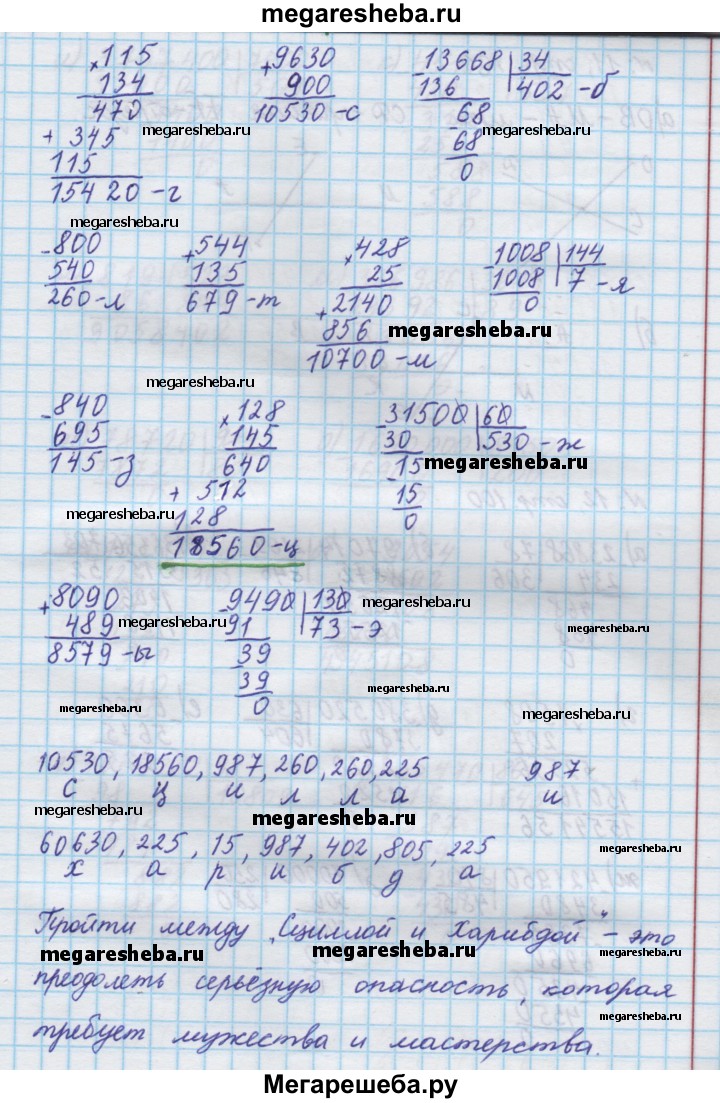 megaresheba.ru
×115 +9630 13668 |34
134 900 136 402 - б
470 10530 - с -68
+ 345 megaresheba.ru 68 megaresheba.ru
115 0
15420 - г
megaresheba.ru
-800 +544 ×428 -1008 |144
540 135 25 1008 7 - я
260 - л 679 - т +2140 0
856 megaresheba.ru
10700 - м
megaresheba.ru
-840 ×128 -31500 |60
695 145 30 530 - ж
145 - з 640 -15 megaresheba.ru
+ 512 15
megaresheba.ru 128 0
18560 - ц
+8090 -9490 |130 megaresheba.ru
489 megaresheba.ru 91 73 - э
8579 - ы -39 megaresheba.ru
39
megaresheba.ru 0 megaresheba.ru
megaresheba.ru
10530, 18560, 987, 260, 260, 225 987
с ц и л л а и
megaresheba.ru megaresheba.ru
60630, 225, 15, 987, 402, 805, 225 megaresheba.ru
х а р и б д а
Пройти между „Сциллой и Харибдой" - это
megaresheba.ru megaresheba.ru megaresheba.ru
преодолеть серьёзную опасность, которая
megaresheba.ru
требует мужества и мастерства.
Мегарешеба.ру